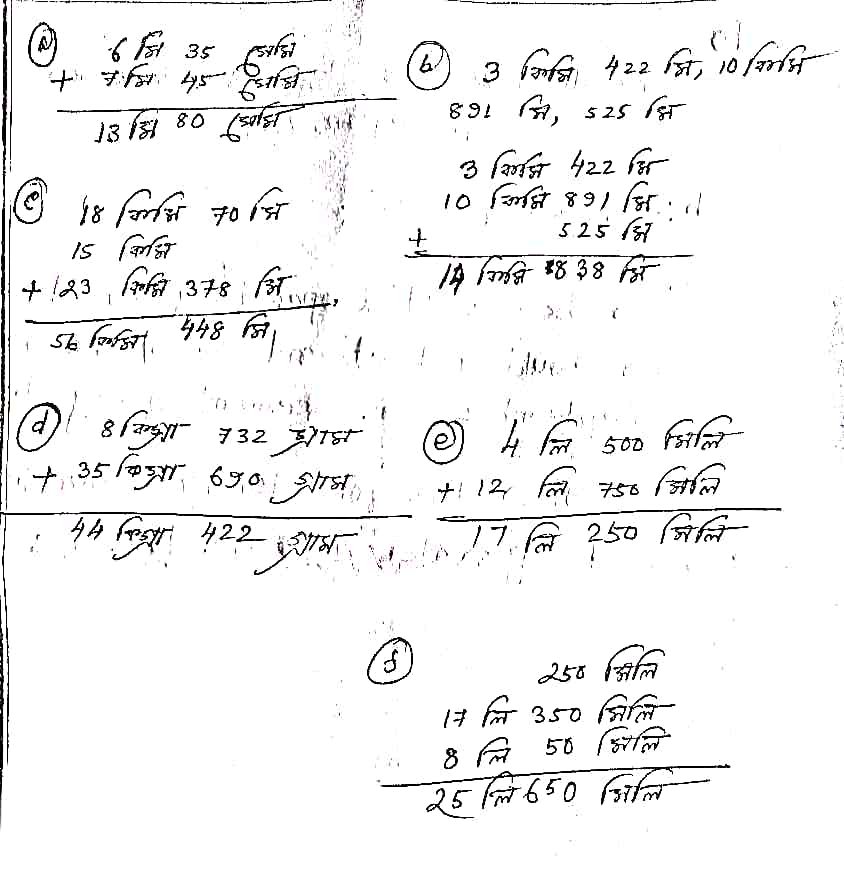 (a) 6 মি 35 সেমি
+ 7 মি 45 সেমি
13 মি 80 সেমি
(b) 3 কিমি 422 মি, 10 কিমি
891 মি, 525 মি
3 কিমি 422 মি
10 কিমি 891 মি
+ 525 মি
14 কিমি 838 মি
(c) 18 কিমি 70 মি
15 কিমি
+ 23 কিমি 378 মি
56 কিমি 448 মি
(d) 8 কিগ্রা 732 গ্রাম
+ 35 কিগ্রা 690 গ্রাম
44 কিগ্রা 422 গ্রাম
(e) 4 লি 500 মিলি
+ 12 লি 750 মিলি
17 লি 250 মিলি
(f) 250 মিলি
17 লি 350 মিলি
8 লি 50 মিলি
25 লি 650 মিলি